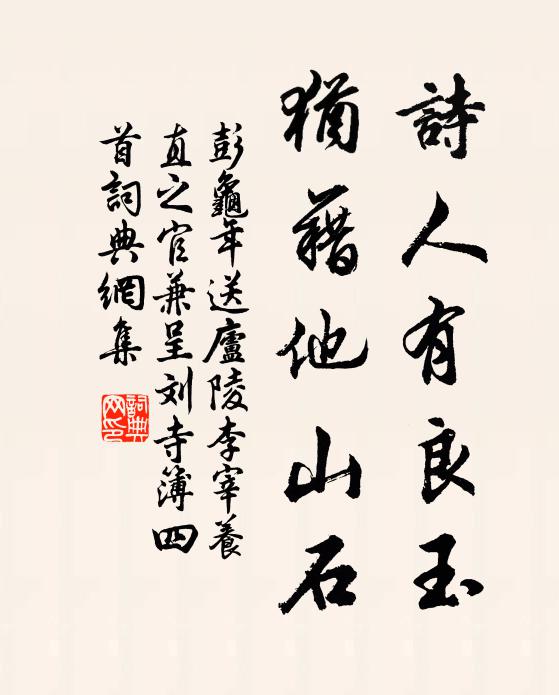 詩人有良玉
猶藉他山石
彭龜年送廬陵李宰養
直之官兼呈刘寺簿四
首詞典網集
詞典網印